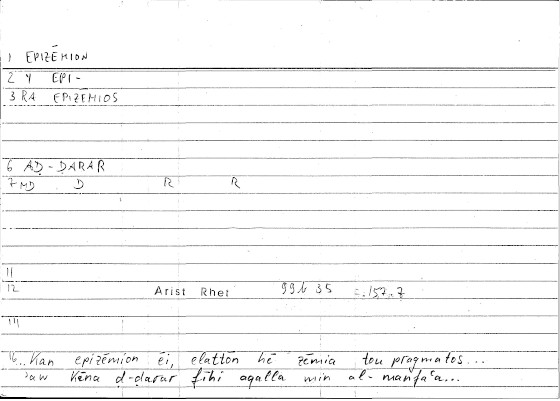 1 EPIZĒMION
2 Y EPI-
3 RA EPIZĒMIOS
6 AḌ-ḌARAR
7 MD Ḍ R R
11
12 Arist Rhet 99b 35 =.157.7
14
16..Kan epizēmion ēi, elattōn hē zēmia tou pragmatos...
ʾaw kāna ḍ-ḍarar fīhi aqalla min al-manfaʿa...